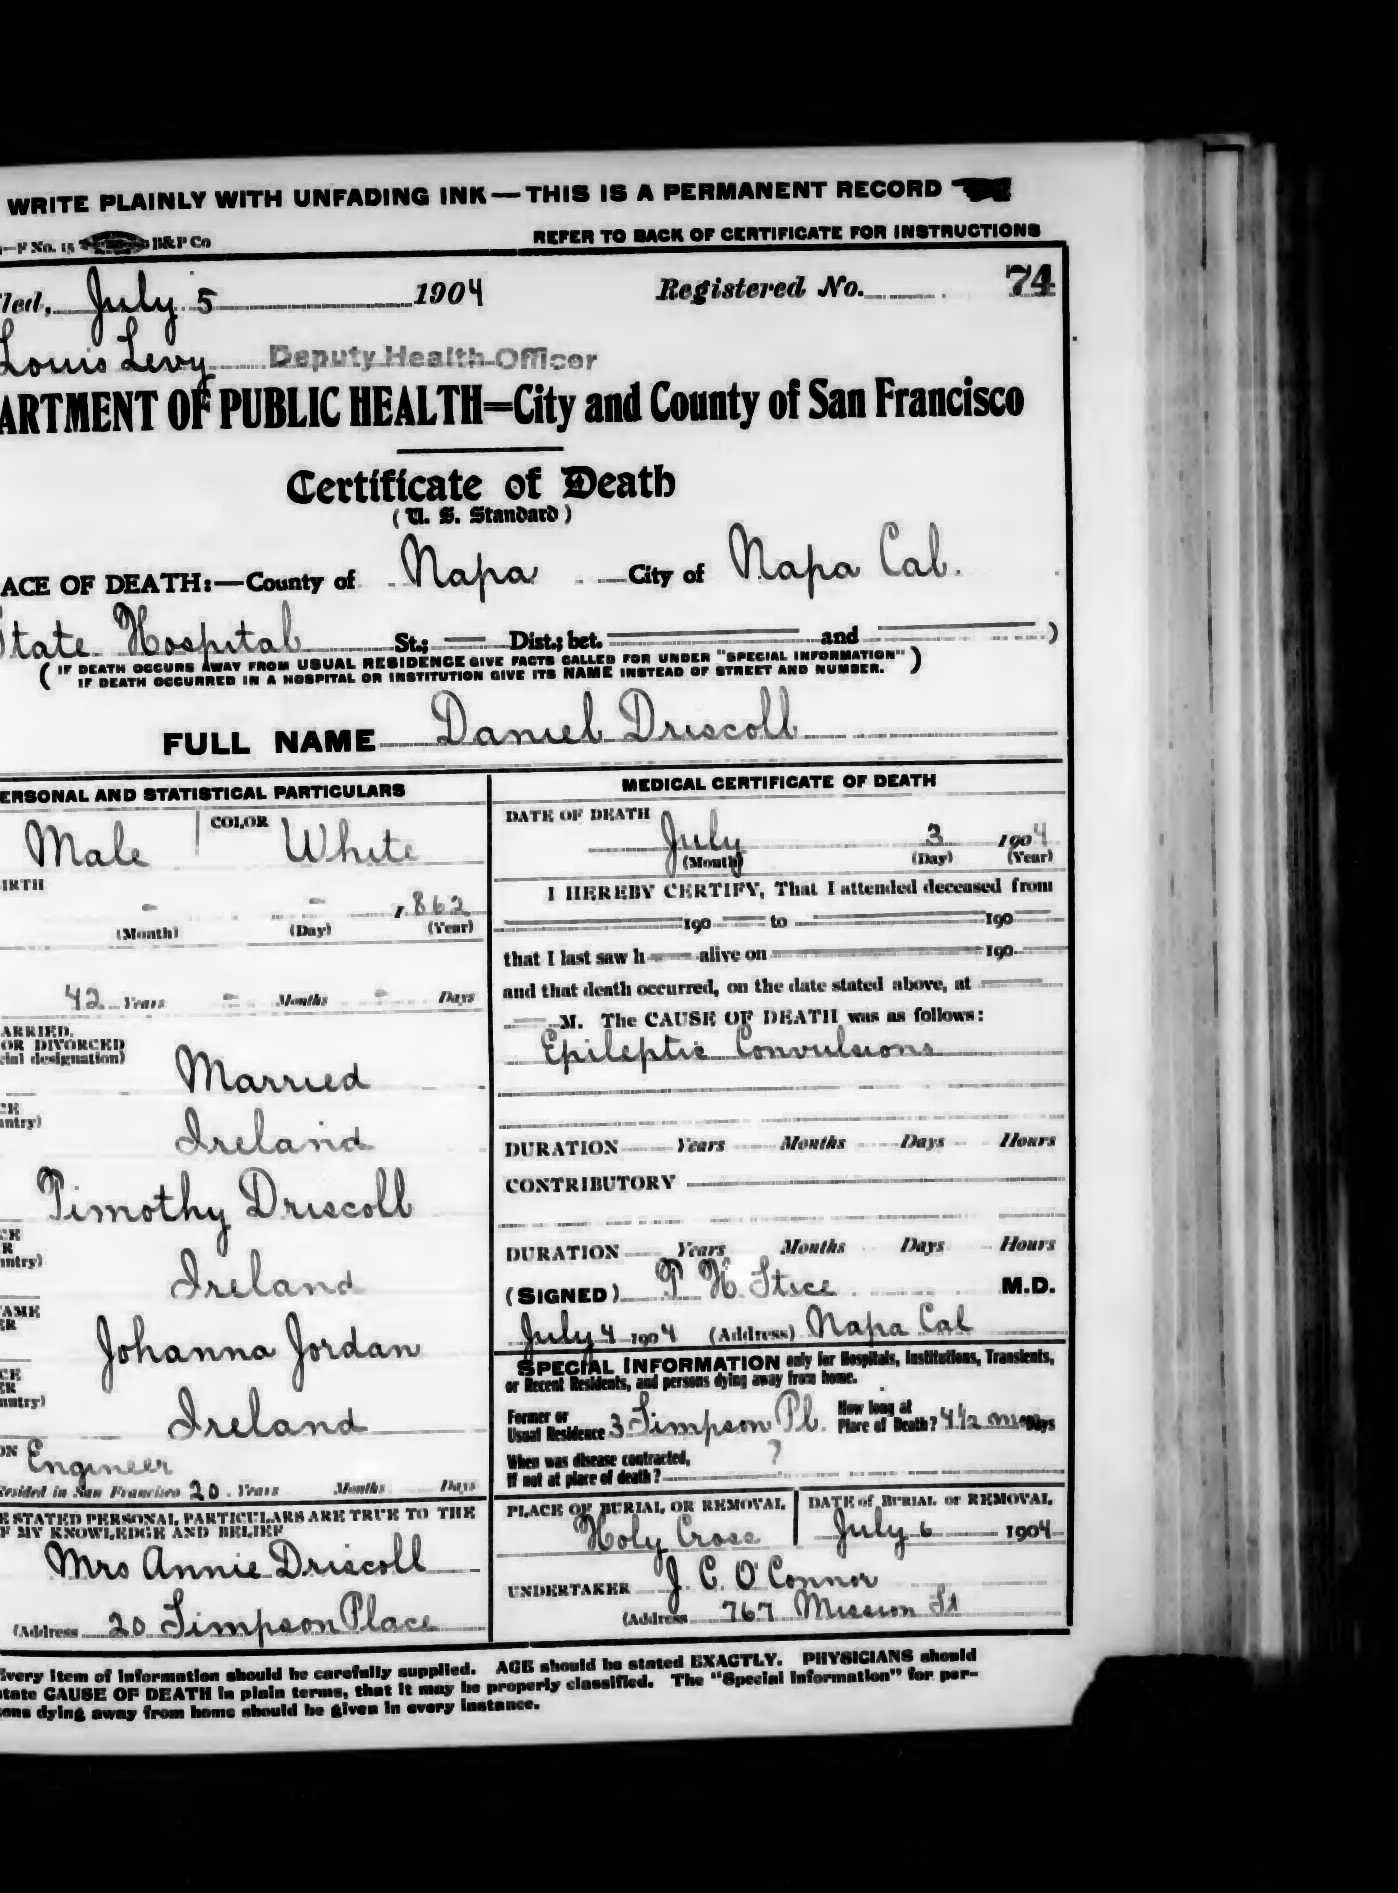 WRITE PLAINLY WITH UNFADING INK—THIS IS A PERMANENT RECORD
—F No. 15 B&P Co
REFER TO BACK OF CERTIFICATE FOR INSTRUCTIONS
led, July 5 1904 Registered No. 74
Louis Levy Deputy Health Officer
ARTMENT OF PUBLIC HEALTH=City and County of San Francisco
Certificate of Death
(U. S. Standard)
ACE OF DEATH:—County of Napa City of Napa Cal.
State Hospital St.; Dist.; bet. and )
( IF DEATH OCCURS AWAY FROM USUAL RESIDENCE GIVE FACTS CALLED FOR UNDER "SPECIAL INFORMATION" )
IF DEATH OCCURRED IN A HOSPITAL OR INSTITUTION GIVE ITS NAME INSTEAD OF STREET AND NUMBER.
FULL NAME Daniel Driscoll
ERSONAL AND STATISTICAL PARTICULARS
Male COLOR White
IRTH
- - 1862
(Month) (Day) (Year)
42 Years - Months - Days
ARRIED,
OR DIVORCED
cial designation)
Married
CE
untry)
Ireland
Timothy Driscoll
CE
R
untry)
Ireland
AME
ER
Johanna Jordan
CE
ER
untry)
Ireland
ON Engineer
Resided in San Francisco 20 Years Months Days
E STATED PERSONAL PARTICULARS ARE TRUE TO THE
F MY KNOWLEDGE AND BELIEF
Mrs Annie Driscoll
(Address 20 Simpson Place
MEDICAL CERTIFICATE OF DEATH
DATE OF DEATH
July 3 1904
(Month) (Day) (Year)
I HEREBY CERTIFY, That I attended deceased from
190 to 190
that I last saw h alive on 190
and that death occurred, on the date stated above, at
M. The CAUSE OF DEATH was as follows:
Epileptic Convulsions
DURATION Years Months Days Hours
CONTRIBUTORY
DURATION Years Months Days Hours
(SIGNED) P H Stice M.D.
July 4 1904 (Address) Napa Cal
SPECIAL INFORMATION only for Hospitals, Institutions, Transients,
or Recent Residents, and persons dying away from home.
Former or
Usual Residence 3 Simpson Pl. How long at
Place of Death? 4½ mos Days
When was disease contracted,
If not at place of death? ?
PLACE OF BURIAL OR REMOVAL DATE of BURIAL or REMOVAL
Holy Cross July 6 1904
UNDERTAKER J. C. O'Connor
(Address 767 Mission St
Every item of information should be carefully supplied. AGE should be stated EXACTLY. PHYSICIANS should
state CAUSE OF DEATH in plain terms, that it may be properly classified. The "Special Information" for per-
sons dying away from home should be given in every instance.